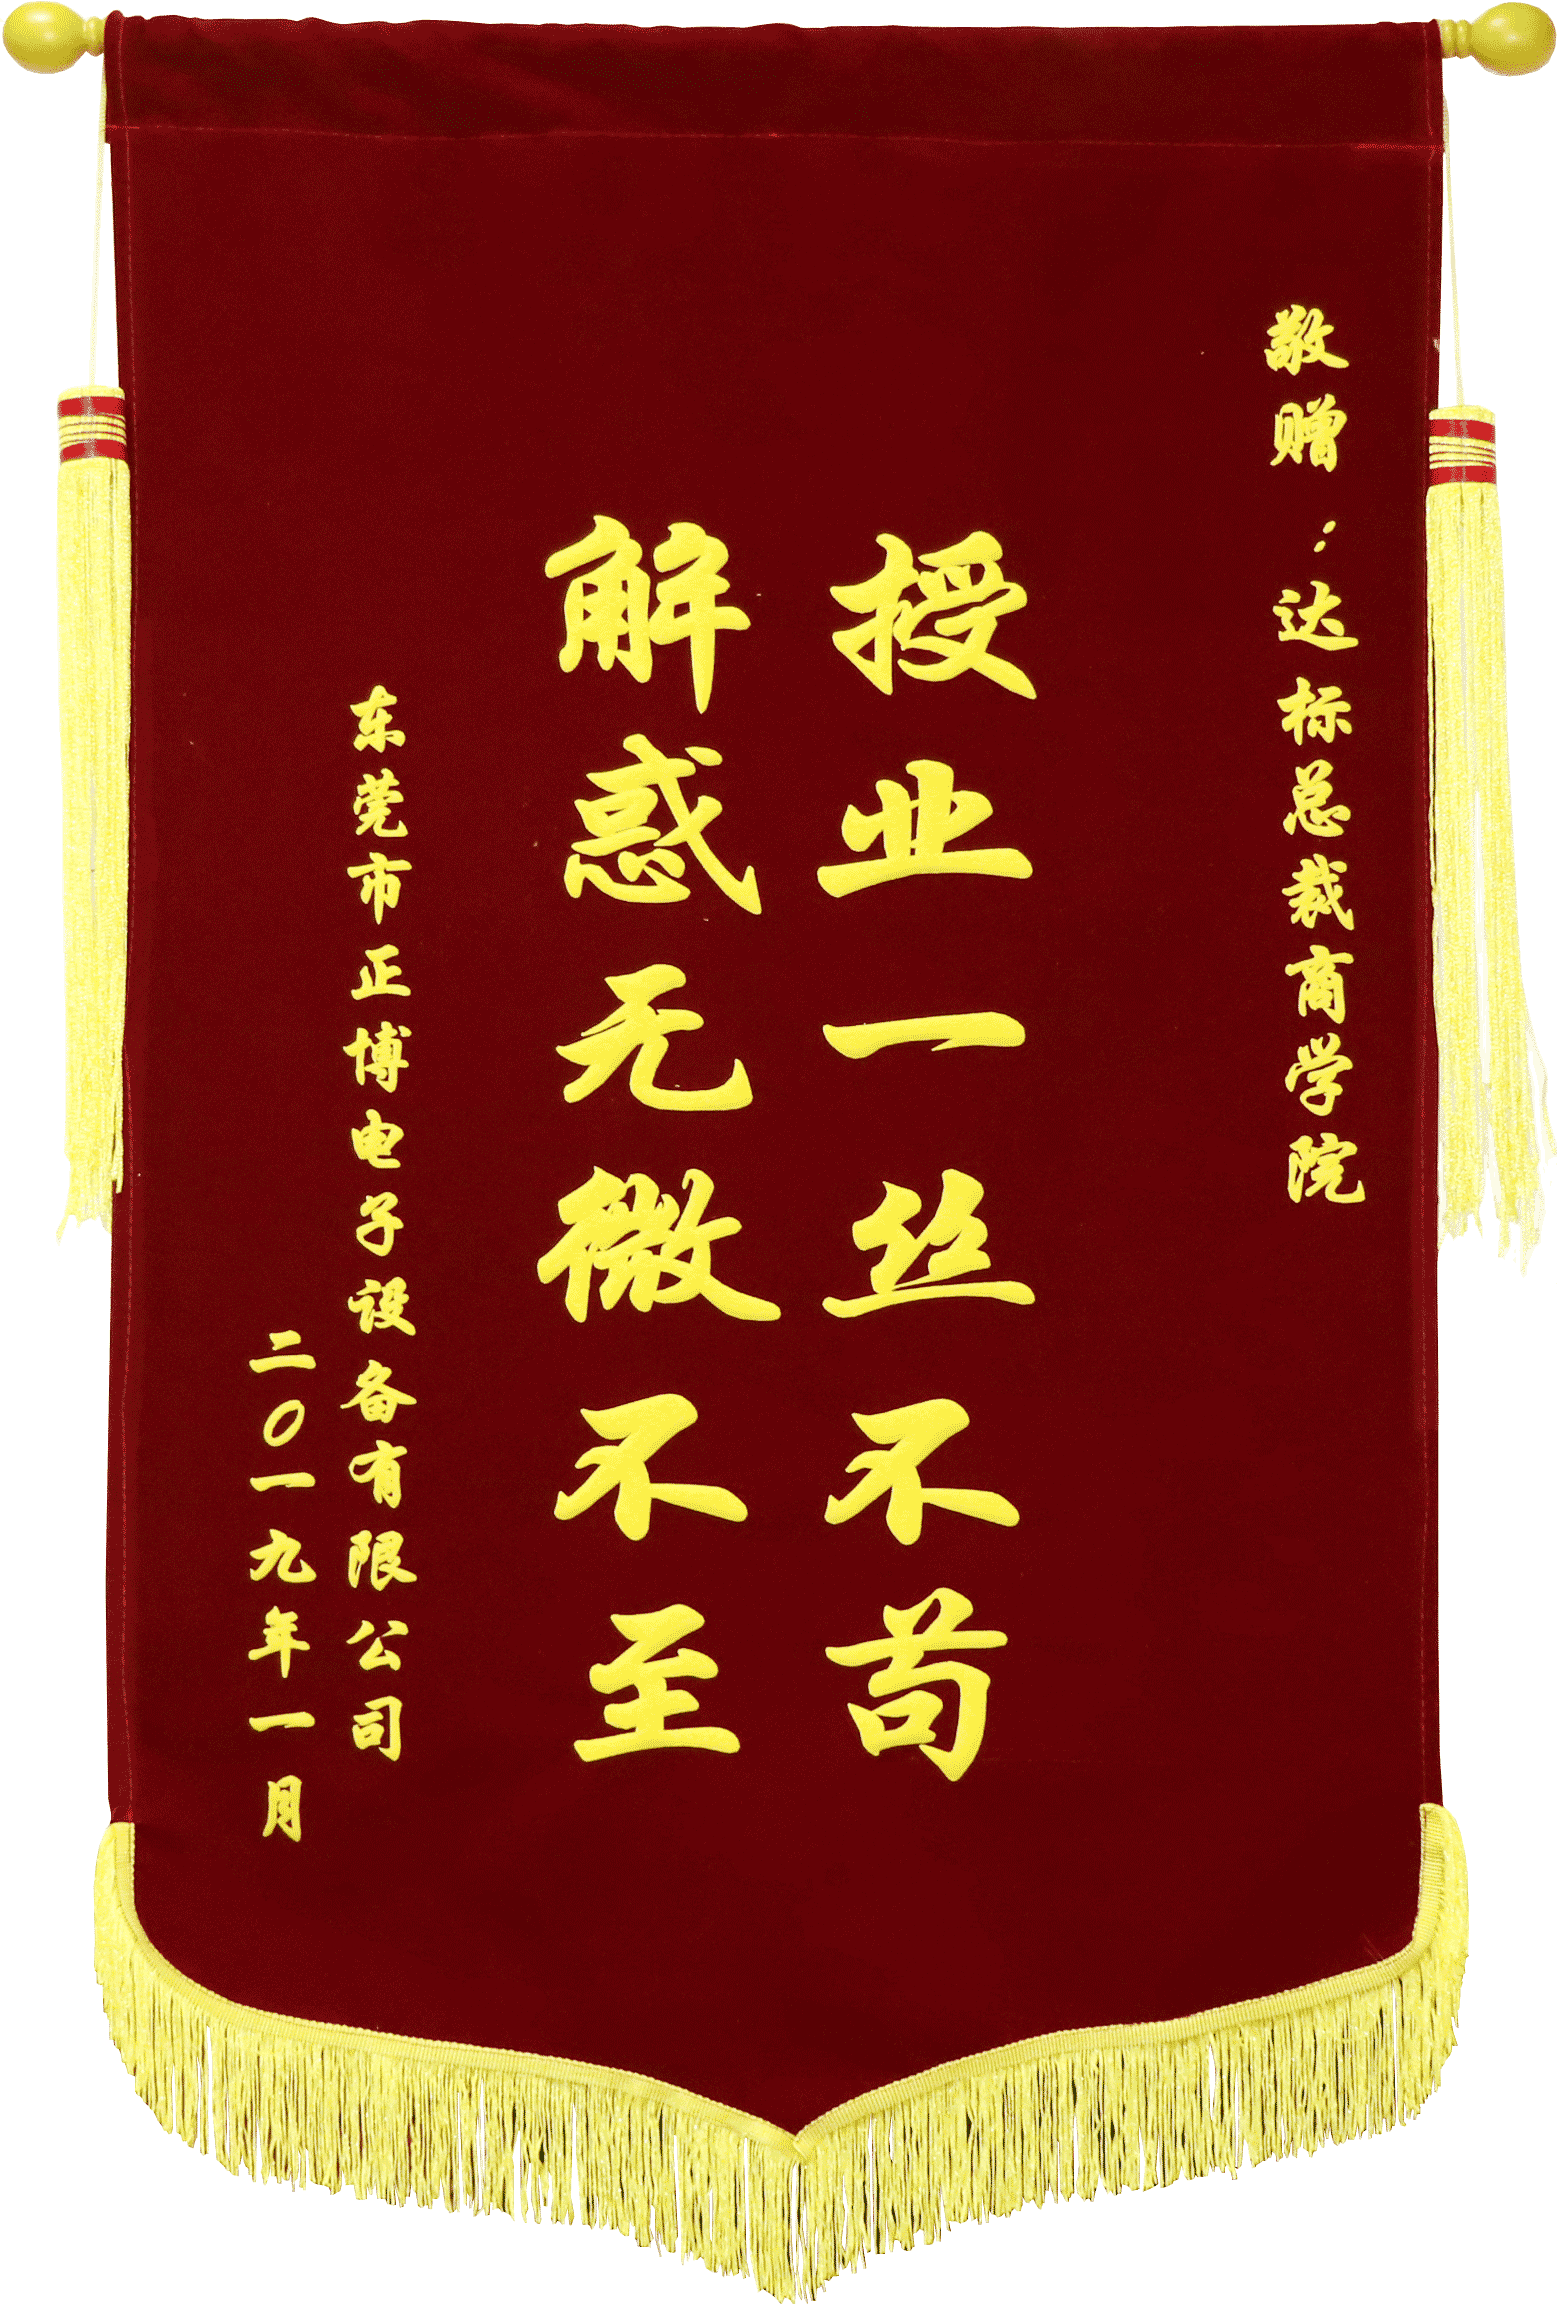 敬赠：达标总裁商学院
授业一丝不苟
解惑无微不至
东莞市正博电子设备有限公司
二〇一九年一月